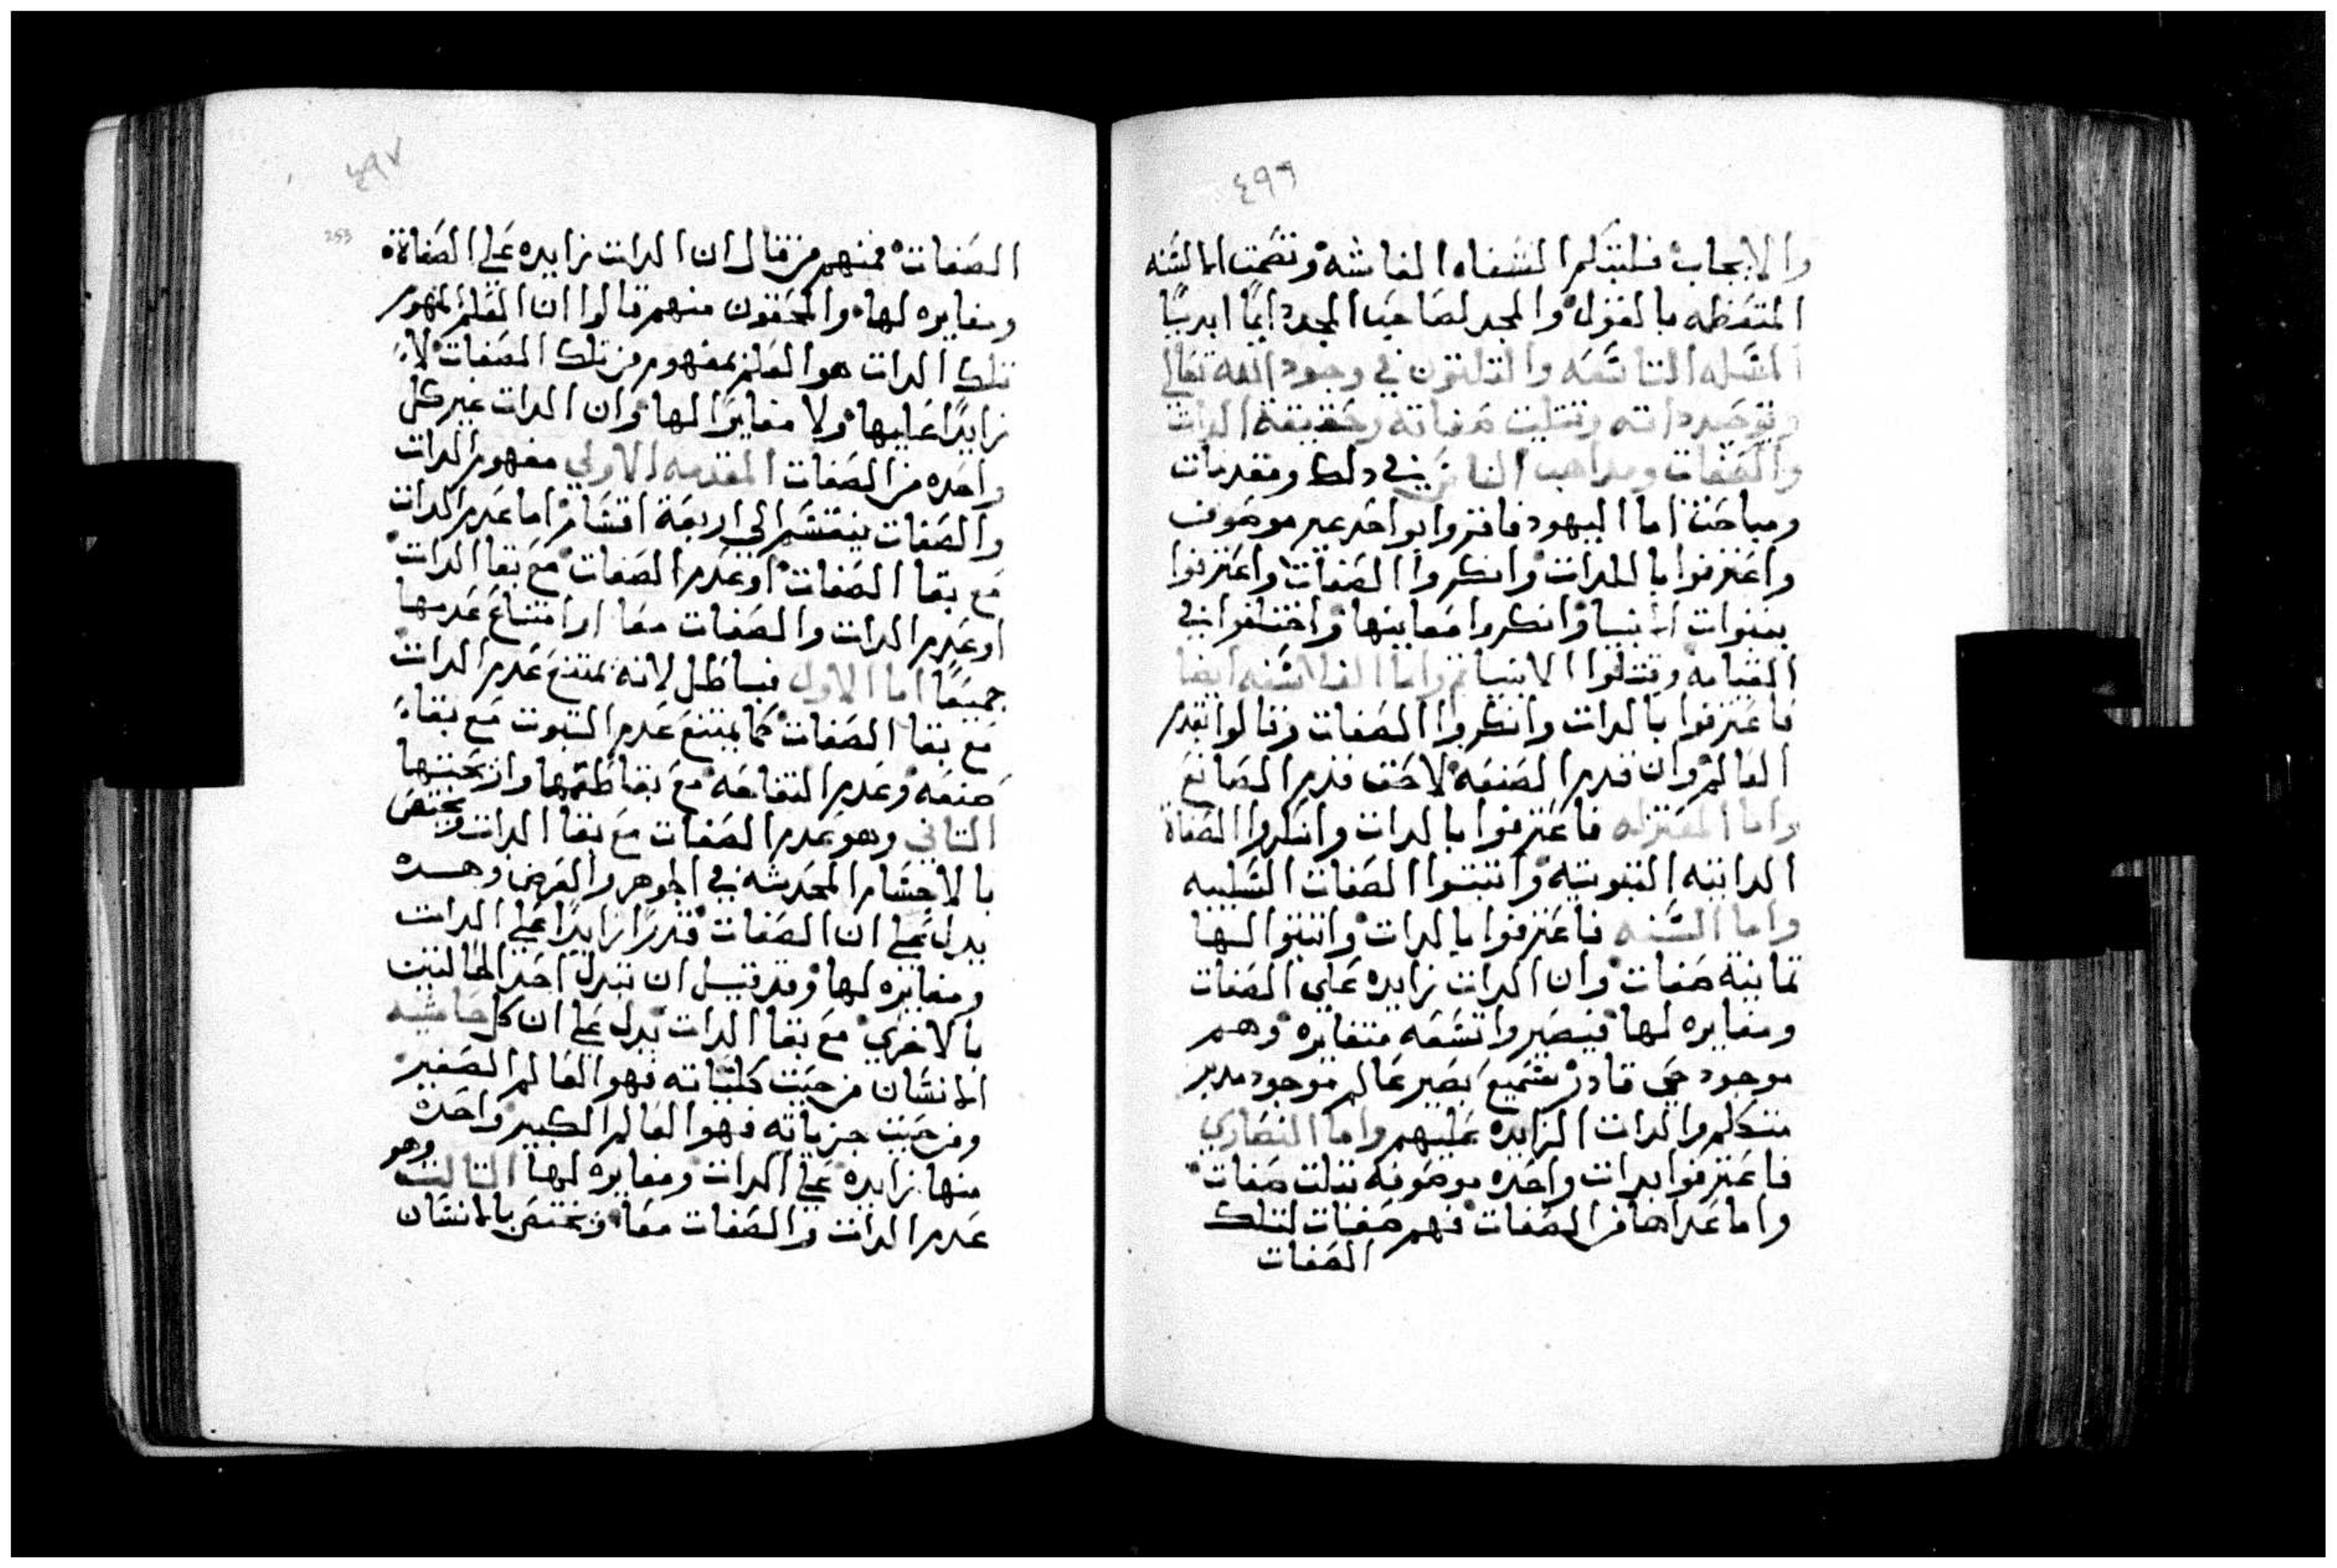 ٤٩٦
والايجاب فليتكلم الشفاه الفاشه وتصمت الالسنه
المتعظه بالقول والمجد لصاحب المجد دايمًا ابديًا
المسله التاسعه والتلتون في وجود الله تعالي
وتوحيد داته وتتليت صفاته وحقيقة الدات
والصفات ومداهب الناس في دلك ومقدمات
ومباحت اما اليهود فاقروا بواحد غير موصوف
واعترفوا بالدات وانكروا الصفات واعترفوا
بنبوات الانبيا وانكروا معاينها واختلفوا في
القيامه وقتلوا الانبيا واما الفلاسفه ايضا
فاعترفوا بالدات وانكروا الصفات وقالوا بقدم
العالم وان قدم الصنعه لاحق قدم الصانع
واما المعتزله فاعترفوا بالدات وانكروا الصفاة
الداتيه التبوتيه واتبتوا الصفات السلبيه
واما السنه فاعترفوا بالدات واتبتوا لها
تمانية صفات وان الدات زايده علي الصفات
ومغايره لها فيصيروا تسعه متغايره وهم
موجود حي قادر سميع بصير عالم موجود مدبر
متكلم والدات الزايده عليهم واما النصاري
فاعترفوا بدات واحده موصوفه بتلت صفات
واما عداها من الصفات فهم صفات لتلك
الصفات
٤٩٧
253
الصفات فمنهم من قال ان الدات زايده علي الصفاة
ومغايره لها والمحققون منهم قالوا ان العلم بمفهوم
تلك الدات هو العلم بمفهوم من تلك الصفات لا
زايدًا عليها ولا مغايرًا لها وان الدات غير كل
واحده من الصفات المقدمه الاولي مفهوم الدات
والصفات ينقسم الي اربعة اقسام اما عدم الدات
مع بقا الصفات او عدم الصفات مع بقا الدات
او عدم الدات والصفات معا او امتناع عدمها
جميعًا اما الاول فباطل لانه يمتنع عدم الدات
مع بقا الصفات كما يمتنع عدم التبوت مع بقا
صنعه وعدم التفاحه مع بقا طعمها وارتحيتها
التاني وهو عدم الصفات مع بقا الدات ويختص
بالاجسام المحديته في الجوهر والعرض وهده
يدل علي ان الصفات قدرًا زايدًا علي الدات
ومغايره لها وقد قيل ان تبدل احد الحالتيت
بالاخري مع بقا الدات يدل علي ان كل حاشيه
الانسان من حيت كلياته فهو العالم الصغير
ومن حيت جزياته فهو العالم الكبير واحده
منها زايده علي الدات ومغايره لها التالت وهو
عدم الدات والصفات معا ويختص بالانسان